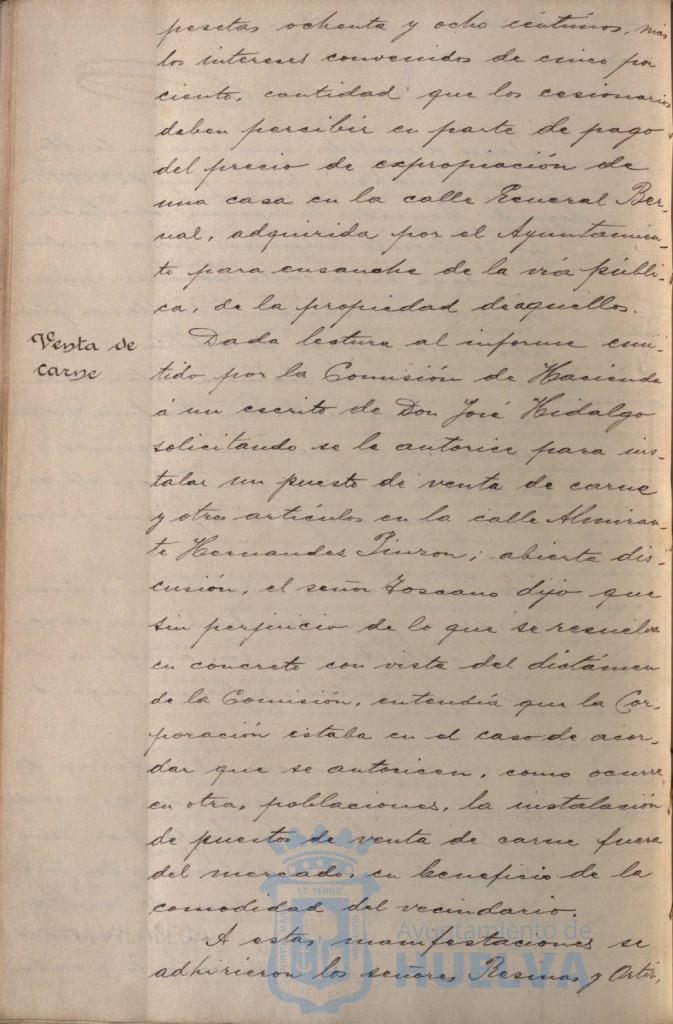 pesetas ochenta y ocho céntimos, más
los intereses convenidos de cinco por
ciento, cantidad que los cesionarios
deben percibir en parte de pago
del precio de expropiación de
una casa en la calle General Ber-
nal, adquirida por el Ayuntamien-
to para ensanche de la vía públi-
ca, de la propiedad de aquellos.
Venta de
carne
Dada lectura al informe emi-
tido por la Comisión de Hacienda
á un escrito de Don José Hidalgo
solicitando se le autorice para ins-
talar un puesto de venta de carne
y otros artículos en la calle Almiran-
te Hernandez Pinzon; abierta dis-
cusión, el señor Toscano dijo que
sin perjuicio de lo que se resuelva
en concreto con vista del dictámen
de la Comisión, entendía que la Cor-
poración estaba en el caso de acor-
dar que se autoricen, como ocurre
en otras poblaciones, la instalación
de puestos de venta de carne fuera
del mercado, en beneficio de la
comodidad del vecindario.
A estas manifestaciones se
adhirieron los señores Resinas y Ortiz,
PORTUS MARIS ET TERRAE CUSTODIA
Ayuntamiento de
HUELVA